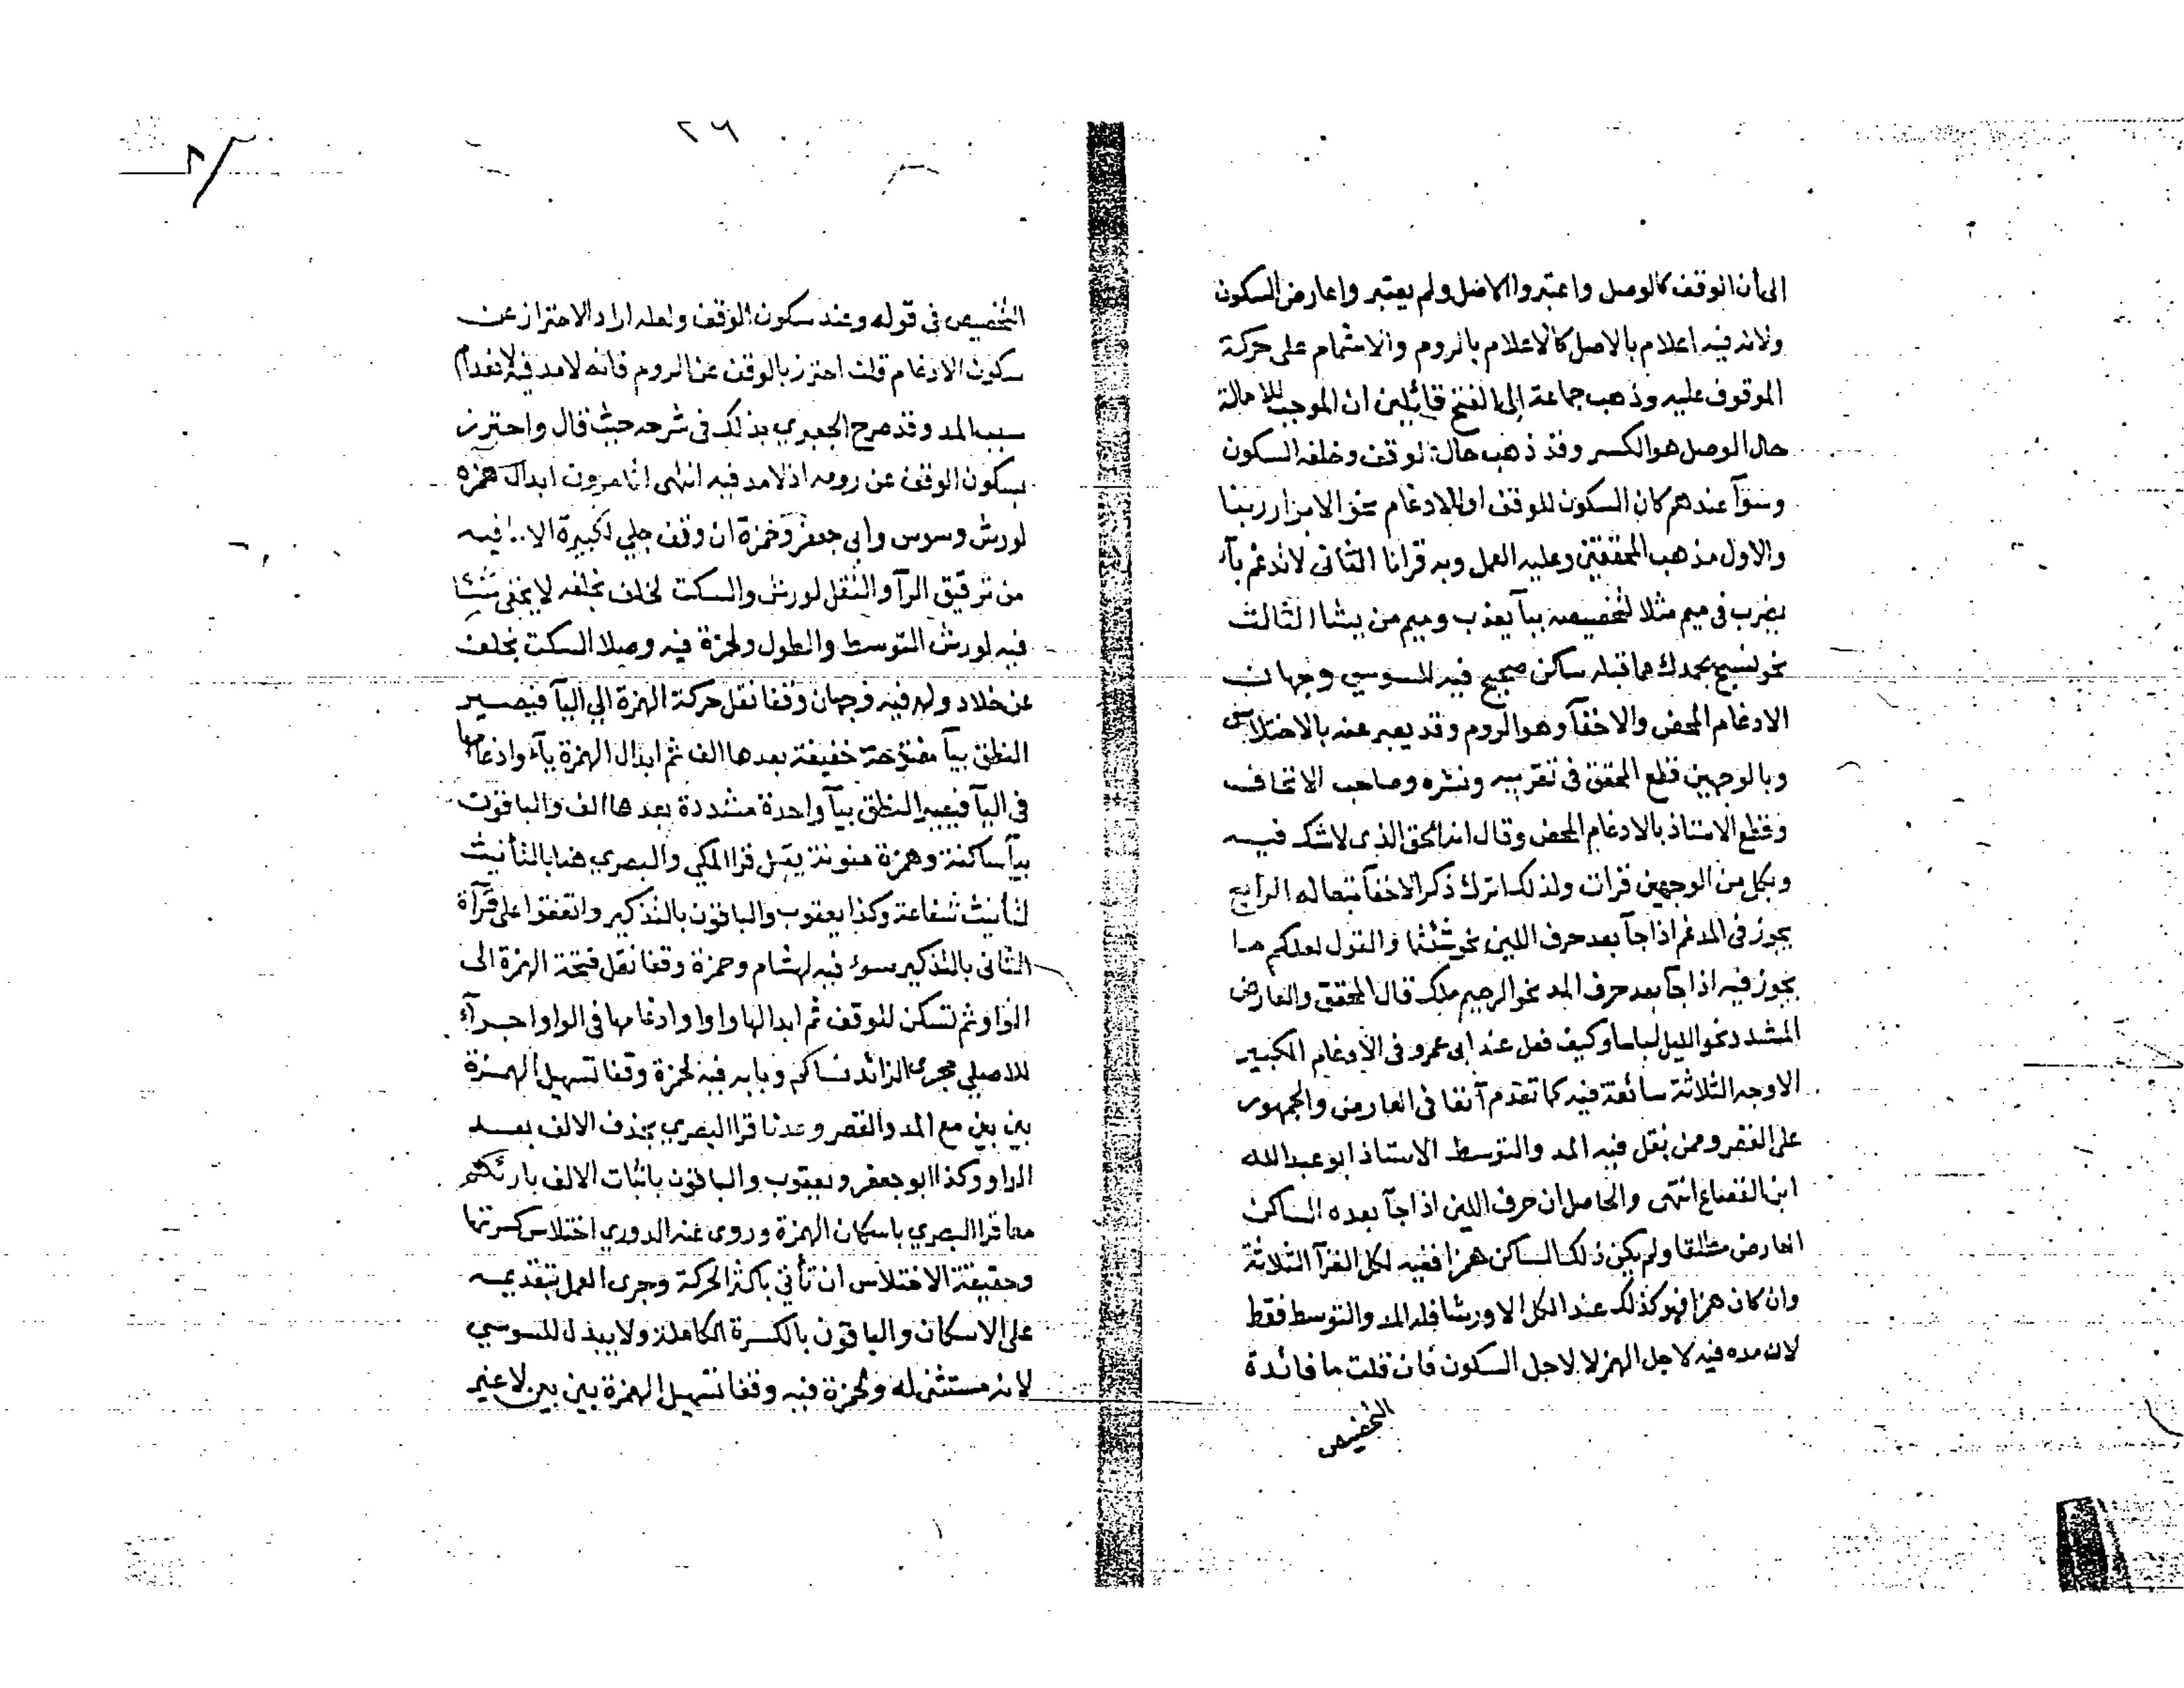 الى أن الوقف كالوصل واعتبروا الاصل ولم يعتبروا عارض السكون
ولانه فيه اعلام بالاصل كالاعلام بالروم والاشمام على حركة
الموقوف عليه وذهب جماعة الى الفتح قائلين ان الموجب للامالة
حال الوصل هو الكسر وقد ذهب حال الوقف وخلفه السكون
وسوآ عندهم كان السكون للوقف او للادغام نحو الابرار ربنا
والاول مذهب المحققين وعليه العمل وبه قرانا الثانى لا تدغم بآء
يضرب فى ميم مثلا لتخصيصه ببآ يعذب وميم من يشا الثالث
نحو نسبح بحمدك مما قبله ساكن صحيح فيه للسوسي وجهان
الادغام المحض والاخفآ وهو الروم وقد يعبر عنه بالاختلاس
وبالوجهين قطع المحقق فى تقريبه ونشره وصاحب الاتحاف
وقطع الاستاذ بالادغام المحض وقال انه الحق الذى لا شك فيه
وبكل من الوجهين قرات ولذلك اترك ذكر الاخفآ تبعا له الرابع
يجوز فى المدغم اذا جآ بعد حرف اللين نحو شئتما والقول لعلكم ما
يجوز فيه اذا جآ بعد حرف المد نحو الرحيم ملك قال المحقق والعارض
المشدد نحو الليل لباسا وكيف فعل عند ابى عمرو فى الادغام الكبير
الاوجه الثلاثة سائغة فيه كما تقدم آنفا فى العارض والجمهور
على القصر وممن نقل فيه المد والتوسط الاستاذ ابو عبد الله
ابن القصاع انتهى والحاصل ان حرف اللين اذا جآ بعده الساكن
العارض مطلقا ولم يكن ذلك الساكن همزا ففيه لكل القرآ الثلاثة
وان كان همزا فهو كذلك عند الكل الا ورشا فله المد والتوسط فقط
لان مده فيه لاجل الهمز لا لاجل السكون فان قلت ما فائدة
التخصيص
٢٦
التخصيص فى قوله وعند سكون الوقف ولعله اراد الاحتراز عن
سكون الادغام قلت احترز بالوقف عن الروم فانه لا مد فيه لانعدام
سبب المد وقد صرح الجعبري بذلك فى شرحه حيث قال واحترز
بسكون الوقف عن رومه اذ لا مد فيه انتهى اتامرون ابدال همزه
لورش وسوس وابى جعفر وحمزة ان وقف جلي لكبيرة الا فيه
من ترقيق الرآ والنقل لورش والسكت لخلف بخلفه لا يخفى شيئا
فيه لورش التوسط والطول ولحمزة فيه وصلا السكت بخلف
عن خلاد وله فيه وجهان وقفا نقل حركة الهمزة الي اليآ فيصير
النطق بيآ مفتوحة خفيفة بعدها الف ثم ابدال الهمزة يآء وادغامها
فى اليآ فيصير النطق بيآ واحدة مشددة بعدها الف والباقون
بيآ ساكنة وهمزة منونة يقبل قرا المكي والبصري هنا بالتأنيث
لتأنيث شفاعة وكذا يعقوب والباقون بالتذكير واتفقوا على قرآة
الثانى بالتذكير سوء فيه لهشام وحمزة وقفا نقل فتحة الهمزة الى
الواو ثم تسكن للوقف ثم ابدالها واوا وادغامها فى الواو اجرآء
للاصلي مجرى الزائد نساكم وبابه فيه لحمزة وقفا تسهيل الهمزة
بين بين مع المد والقصر وعدنا قرا البصري بحذف الالف بعد
الواو وكذا ابو جعفر ويعقوب والباقون باثبات الالف بارئكم
معا قرا البصري باسكان الهمزة وروى عنه الدوري اختلاس كسرتها
وحقيقة الاختلاس ان تأتي باكثر الحركة وجرى العمل بتقديمه
على الاسكان والباقون بالكسرة الكاملة ولا يبدل للسوسي
لانه مستثنى له ولحمزة فيه وقفا تسهيل الهمزة بين بين لا غير